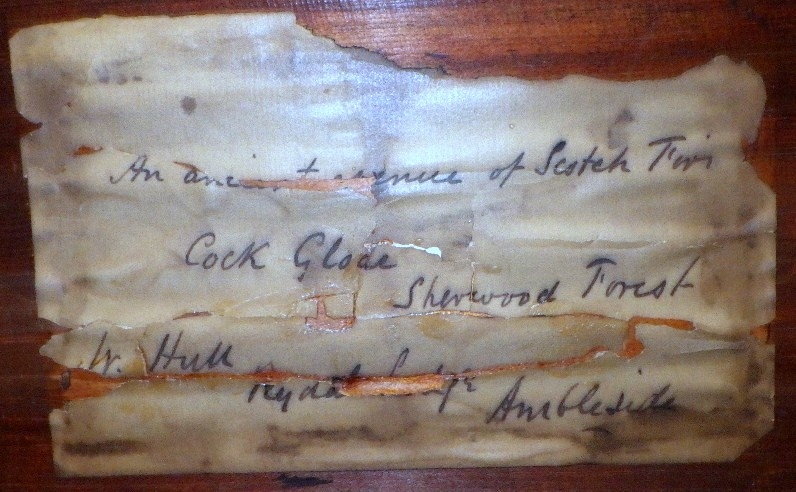 An ancient avenue of Scotch Firs
Cock Glode
Sherwood Forest
W. Hull
Rydal Lodge
Ambleside